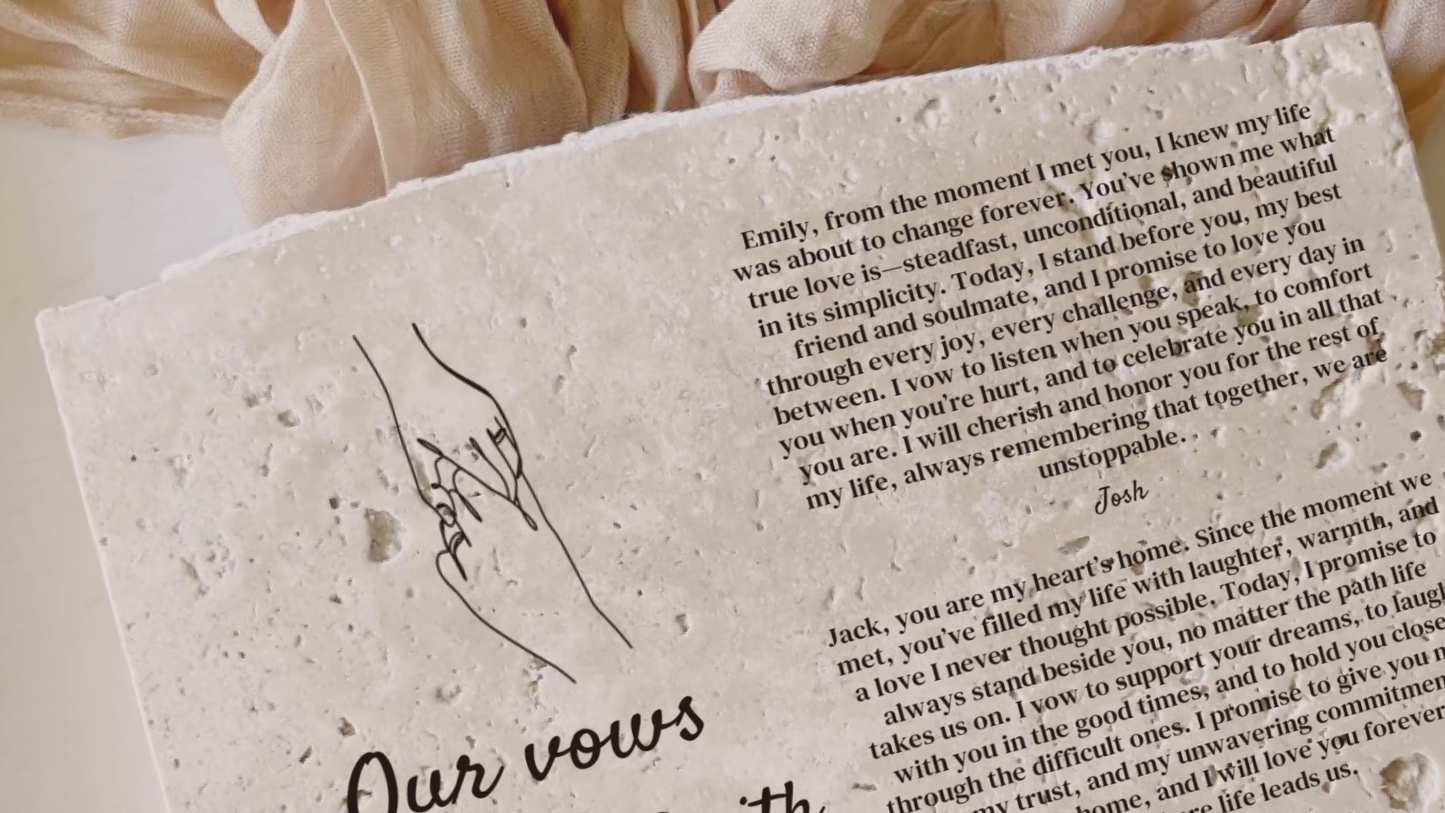 Emily, from the moment I met you, I knew my life
was about to change forever. You've shown me what
true love is—steadfast, unconditional, and beautiful
in its simplicity. Today, I stand before you, my best
friend and soulmate, and I promise to love you
through every joy, every challenge, and every day in
between. I vow to listen when you speak, to comfort
you when you're hurt, and to celebrate you in all that
you are. I will cherish and honor you for the rest of
my life, always remembering that together, we are
unstoppable.
Josh
Jack, you are my heart's home. Since the moment we
met, you've filled my life with laughter, warmth, and
a love I never thought possible. Today, I promise to
always stand beside you, no matter the path life
takes us on. I vow to support your dreams, to laugh
with you in the good times, and to hold you close
through the difficult ones. I promise to give you
my trust, and my unwavering
home, and I will love you forever
life leads us.
Our vows